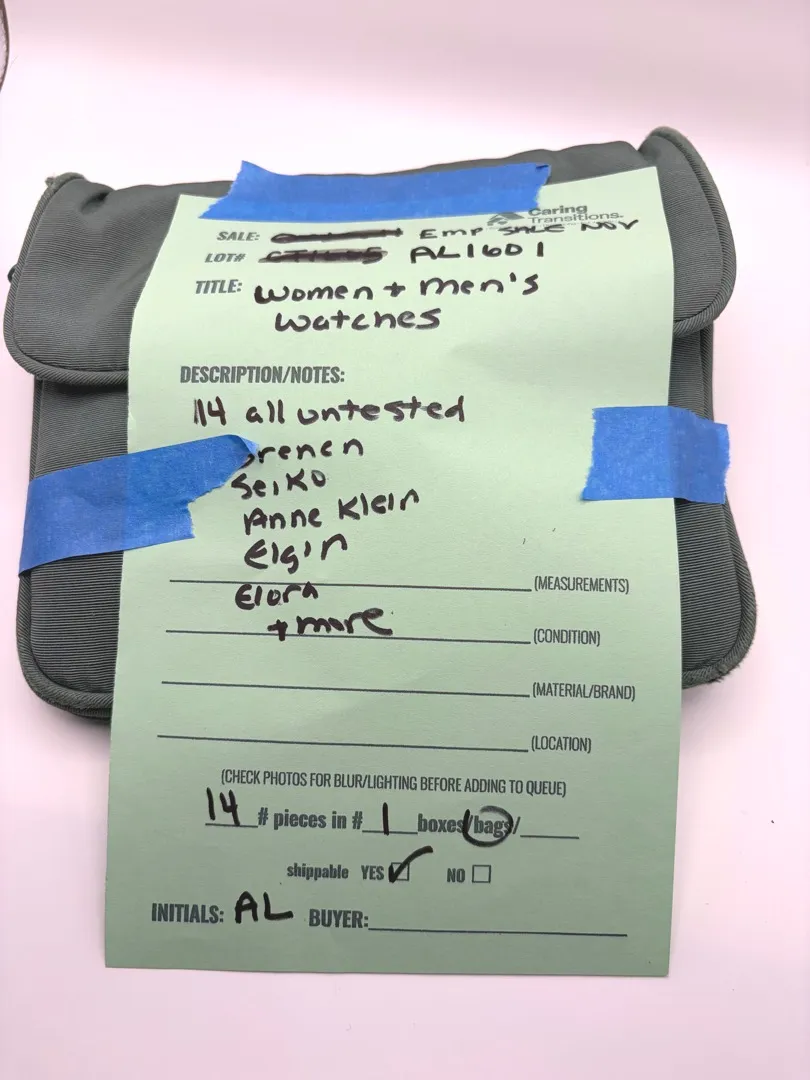 Caring
Transitions
SALE: EMP SALE NOV
LOT# AL1601
TITLE: women + men's
watches
DESCRIPTION/NOTES:
14 all untested
Seiko
Anne Klein
Elgin
(MEASUREMENTS)
Elora
+ more
(CONDITION)
(MATERIAL/BRAND)
(LOCATION)
(CHECK PHOTOS FOR BLUR/LIGHTING BEFORE ADDING TO QUEUE)
14 # pieces in # 1 boxes/bags/
shippable YES NO
INITIALS: AL BUYER: